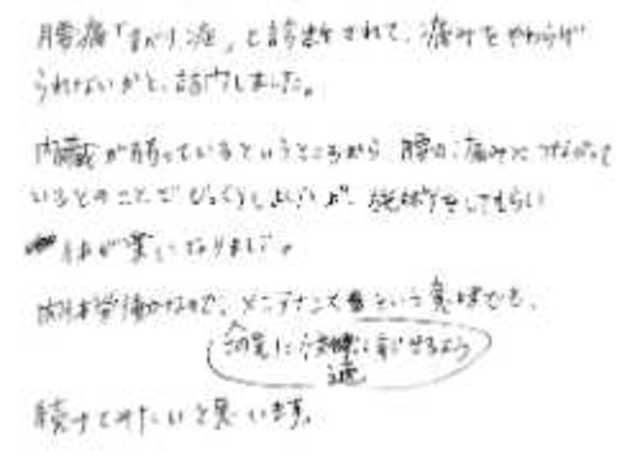 腰痛「すべり症」と診断されて、痛みをやわらげ
られないかと、訪問しました。
内蔵が弱っているというところから 腰の痛みにつながって
いるとのことでびっくりしましたが、施術をしてもらい
体が楽になりました。
肉体労働なので、メンテナンスという意味でも、
に
続けてみたいと思います。